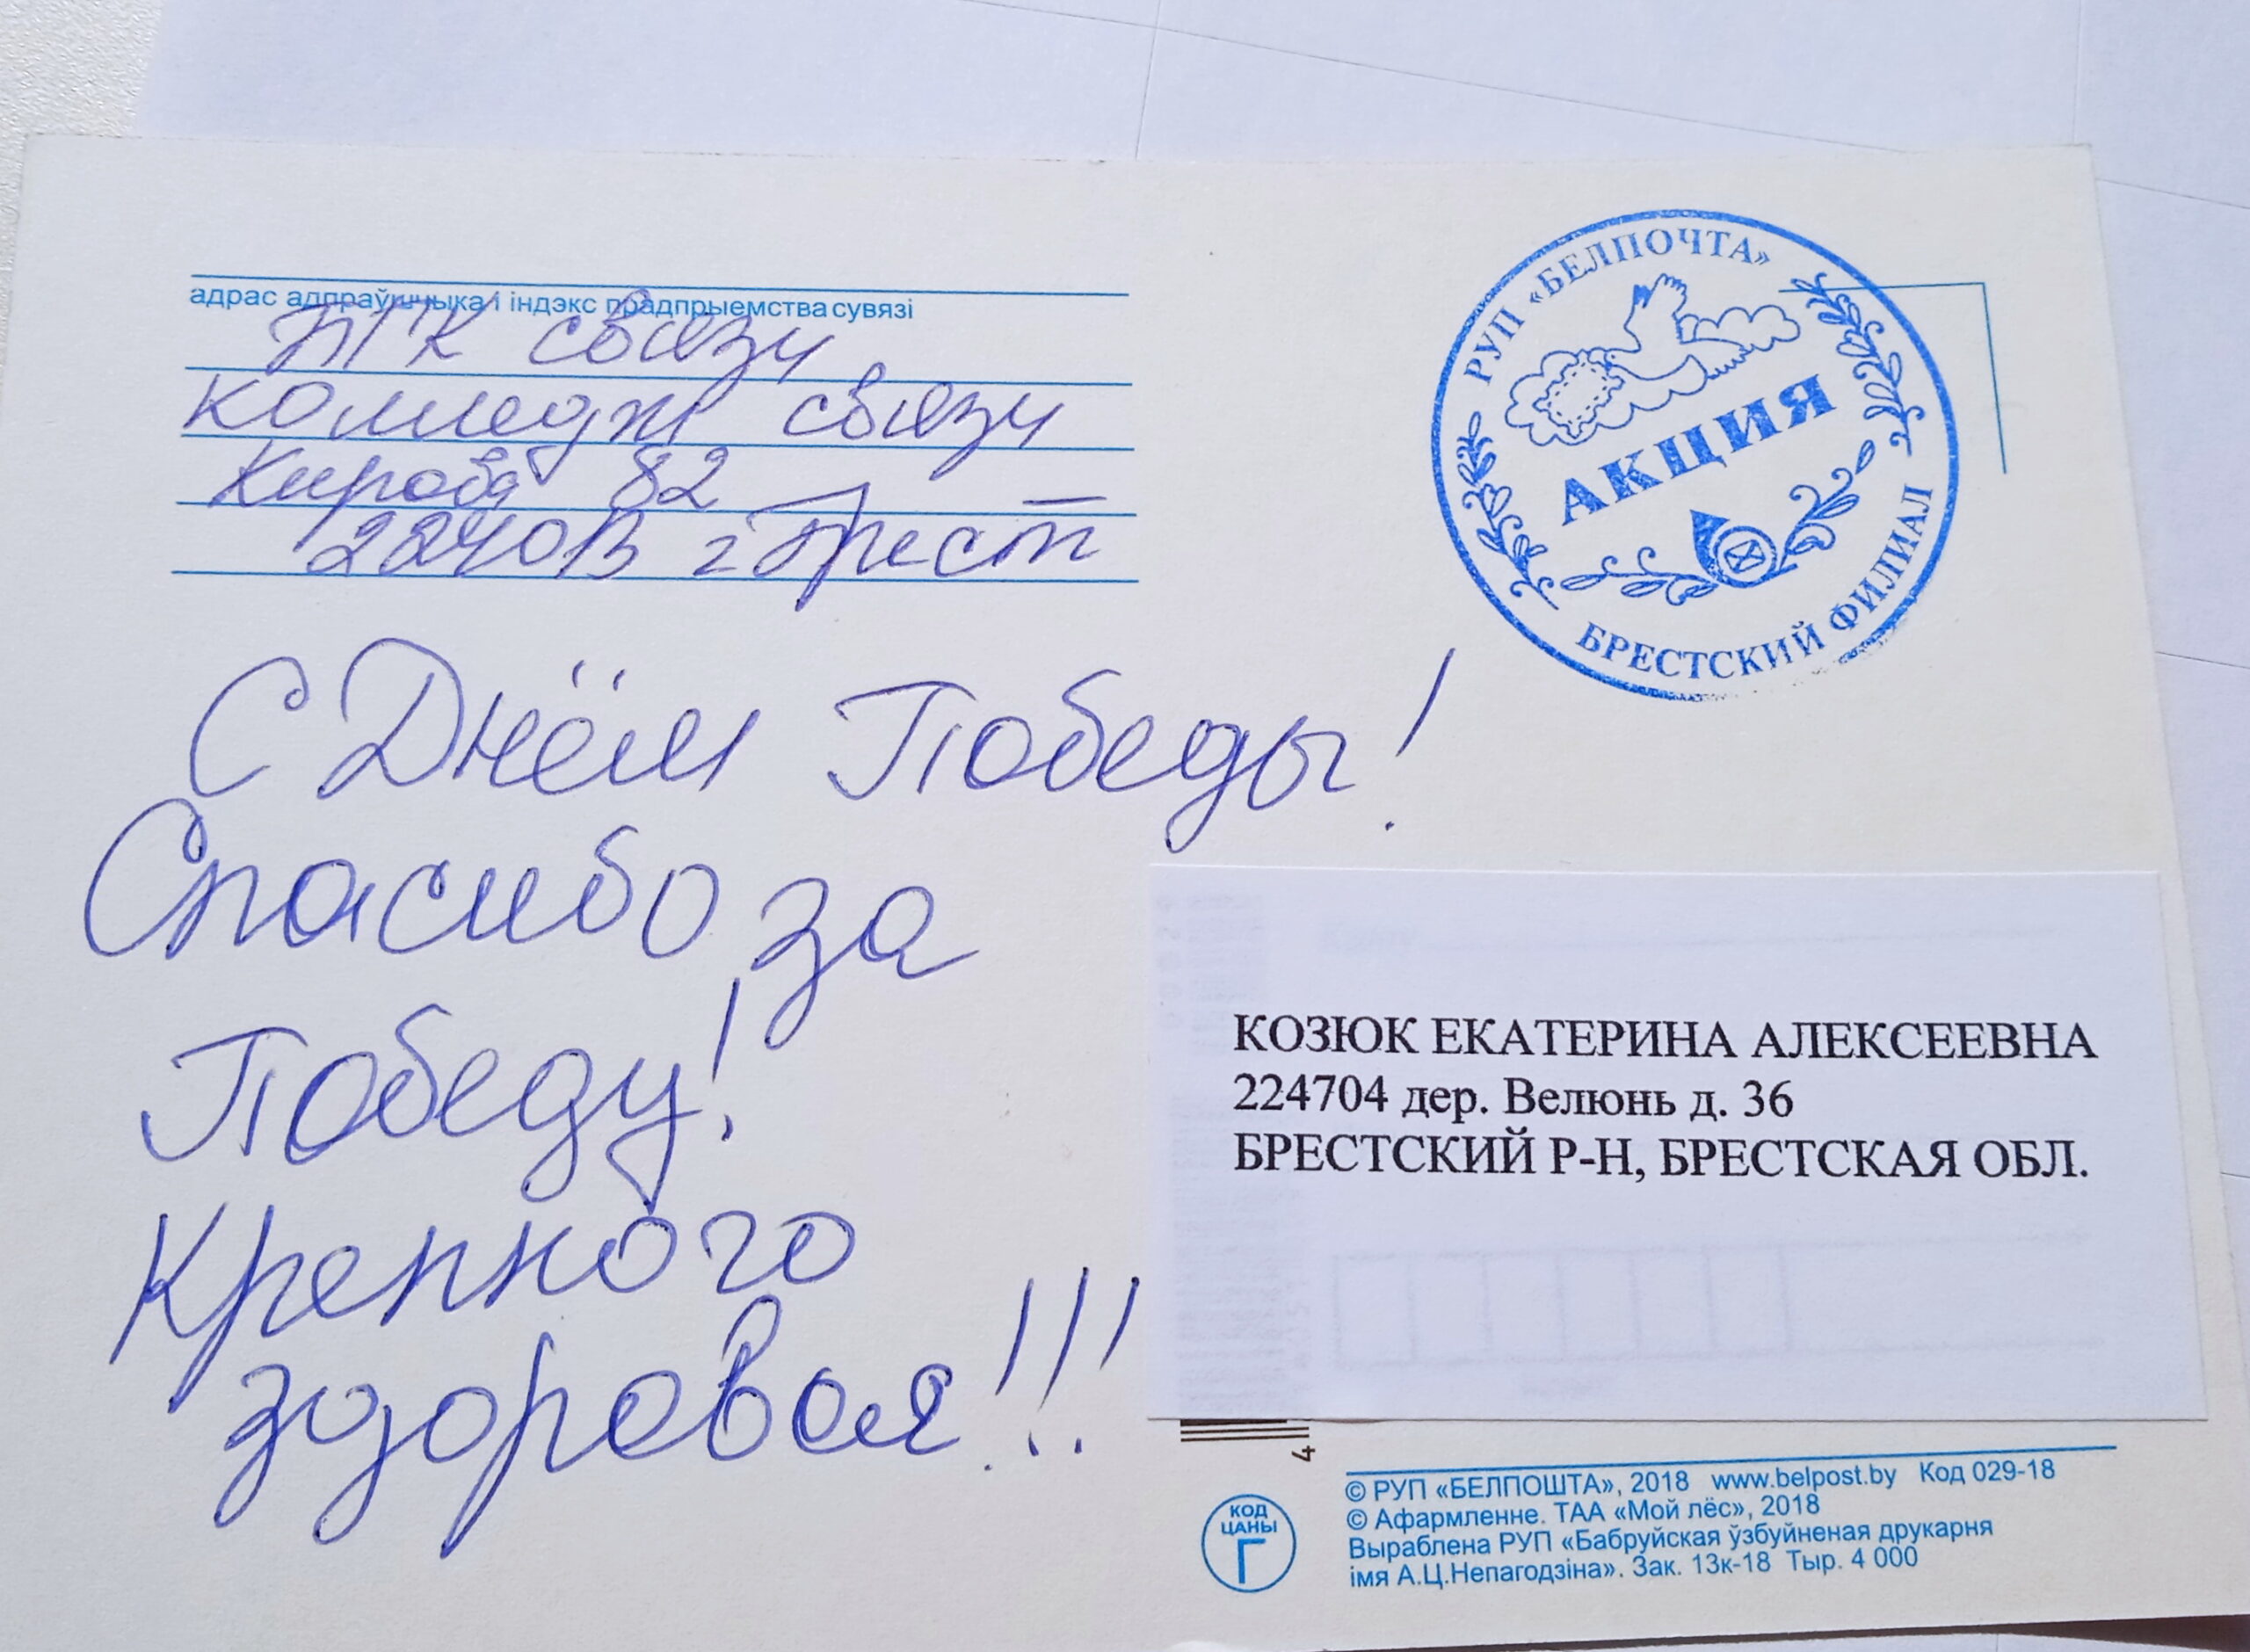 адрас адпраўшчыка і індэкс прадпрыемства сувязі
связи
колледж связи
Кирова 82
г Брест
РУП «БЕЛПОЧТА»
АКЦИЯ
БРЕСТСКИЙ ФИЛИАЛ
С Днём Победы!
Спасибо за
Победу!
Крепкого
здоровья!!!
КОЗЮК ЕКАТЕРИНА АЛЕКСЕЕВНА
224704 дер. Велюнь д. 36
БРЕСТСКИЙ Р-Н, БРЕСТСКАЯ ОБЛ.
4
КОД
ЦАНЫ
Г
© РУП «БЕЛПОШТА», 2018 www.belpost.by Код 029-18
© Афармленне. ТАА «Мой лёс», 2018
Выраблена РУП «Бабруйская ўзбуйненая друкарня
імя А.Ц.Непагодзіна». Зак. 13к-18 Тыр. 4 000